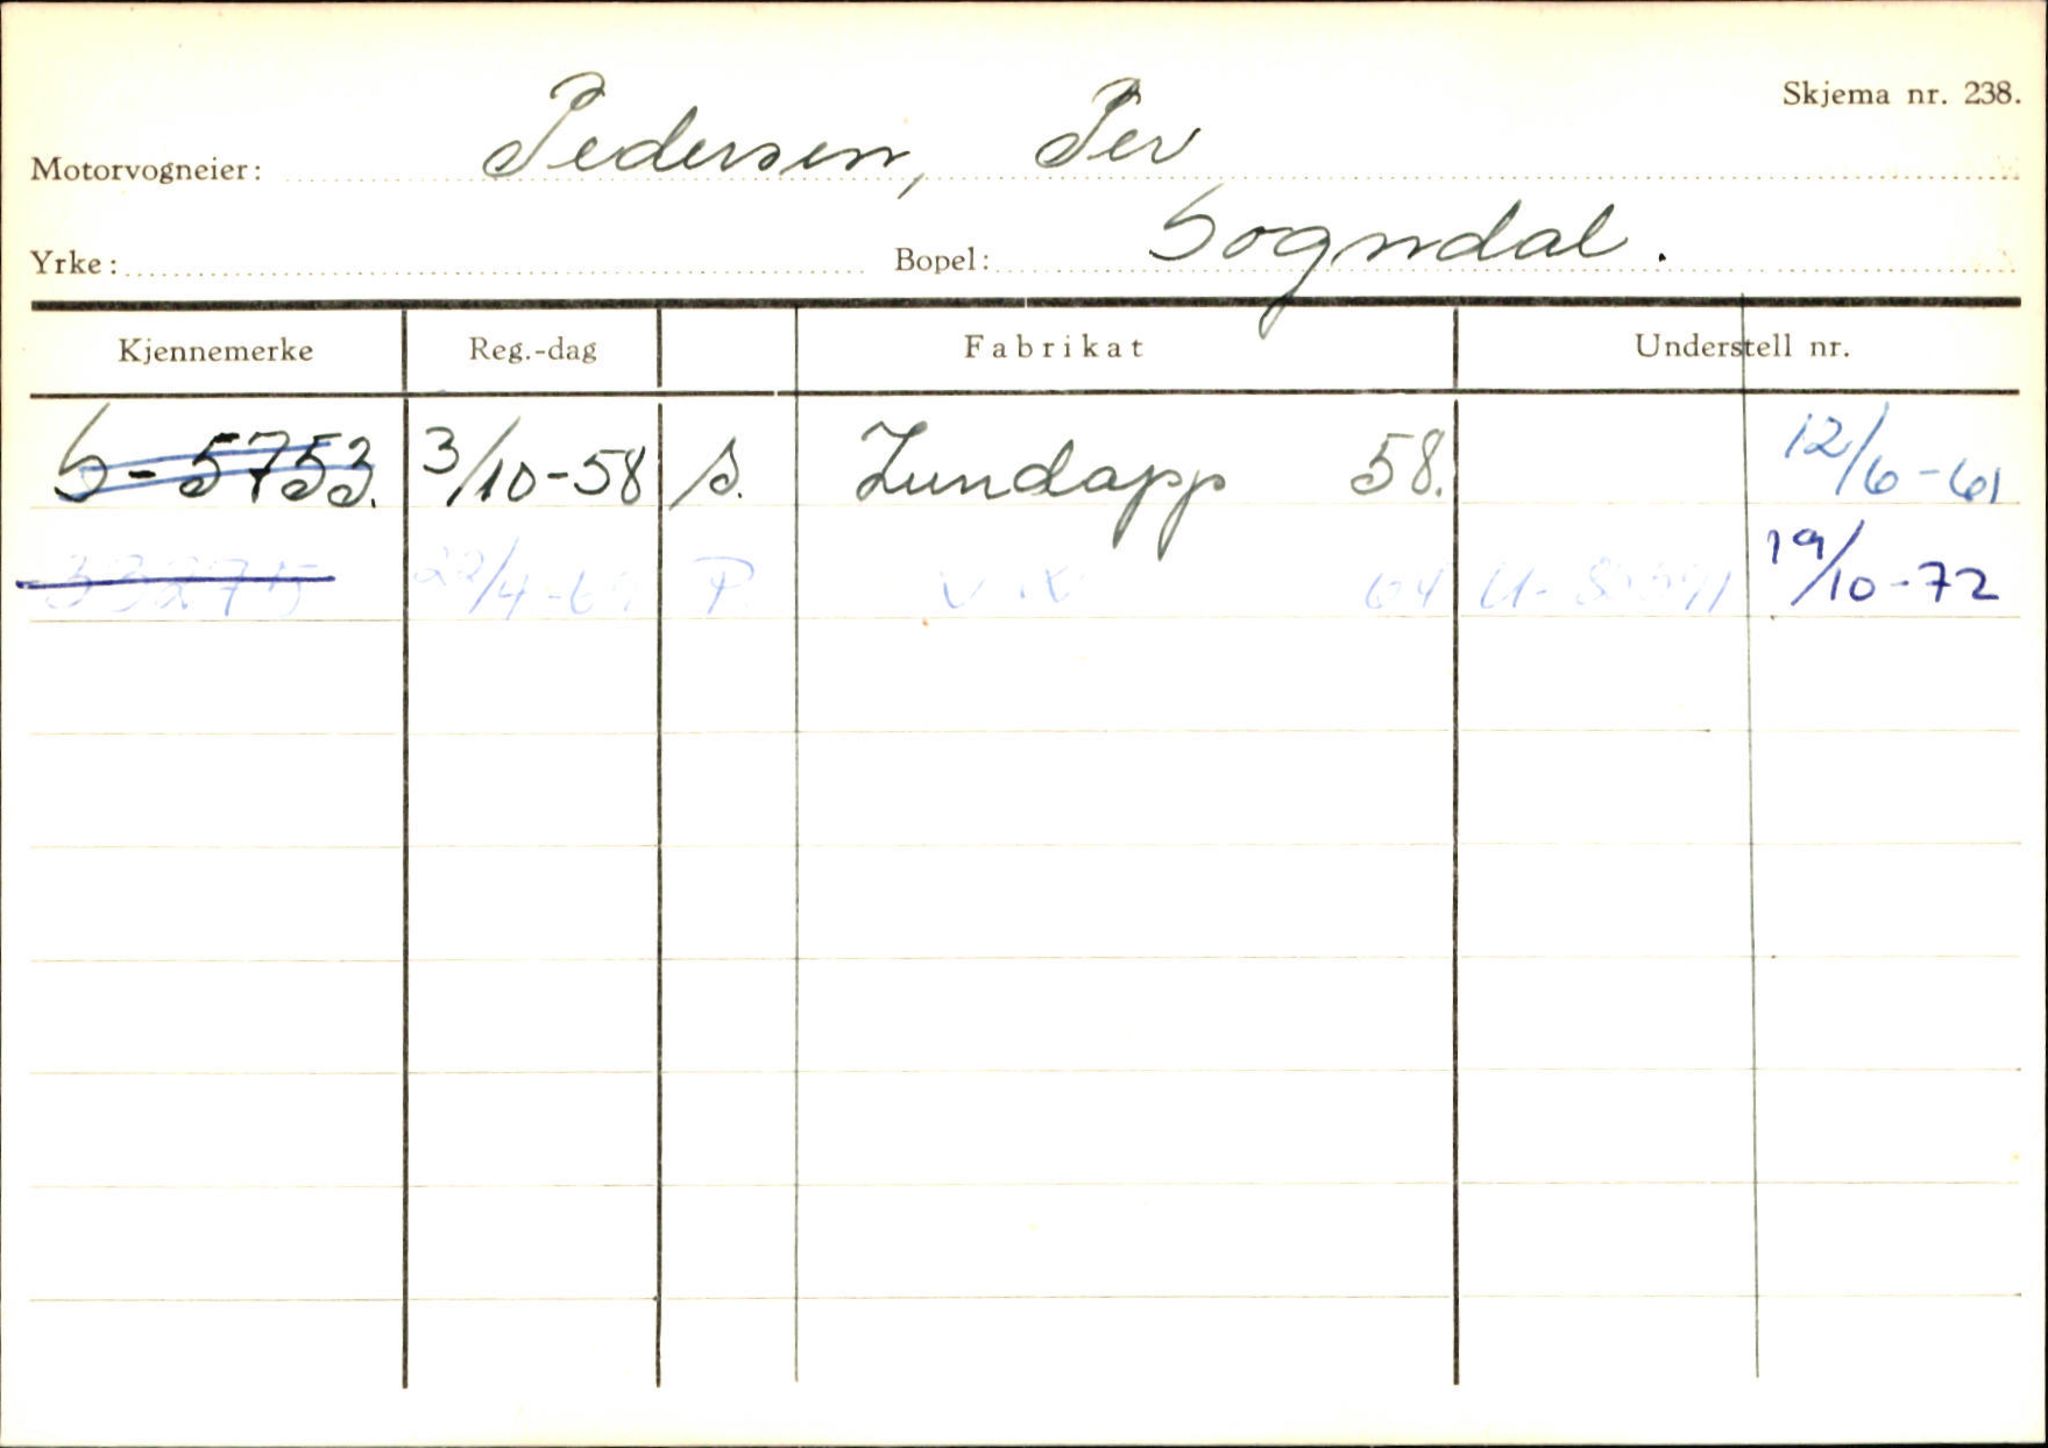 Skjema nr. 238.
Motorvogneier: Pedersen, Per
Yrke: Bopel: Sogndal.
Kjennemerke Reg.-dag Fabrikat Understell nr.
S-5753. 3/10-58 s. Zundapp 58. 12/6-61
22/4-69 P. 64 19/10-72